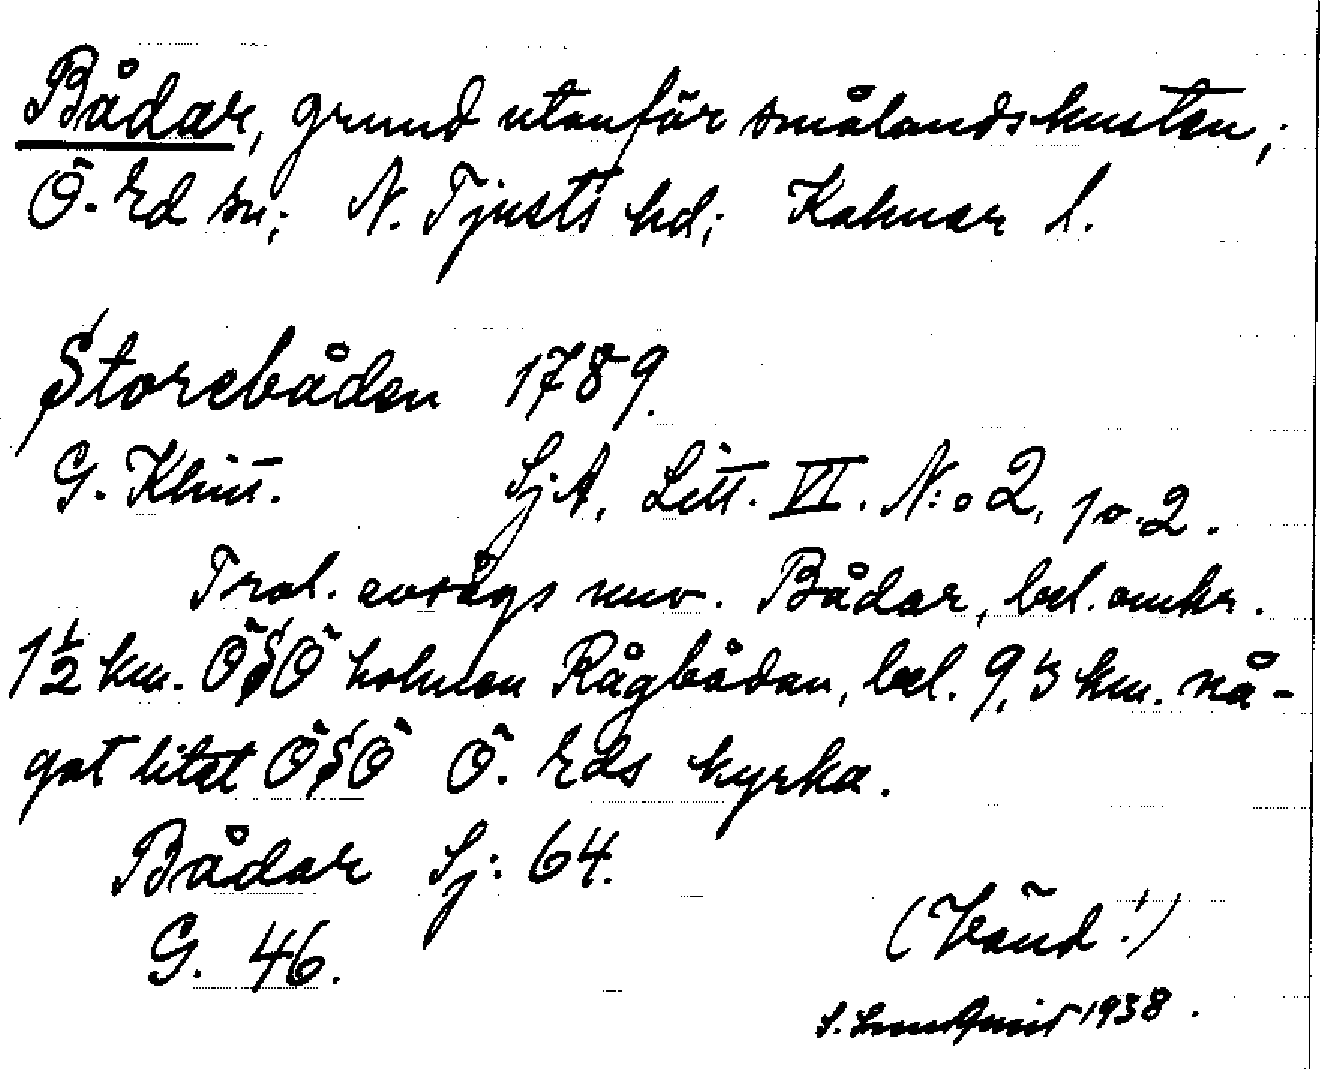 Bådar, grund utanför smålandskusten;
Ö. Ed sn; N. Tjusts hd; Kalmar l.
Storebåden 1789.
G. Klint. SjA, Litt. VI. N:o 2, p. 2.
Trol. avsågs nuv. Bådar, bel. omkr.
1½ km. ÖSÖ holmen Rågbådan, bel. 9,3 km. nå-
got litet ÖSÖ Ö. Eds kyrka.
Bådar Sj: 64.
G. 46.
(Vänd!)
S. 1938.